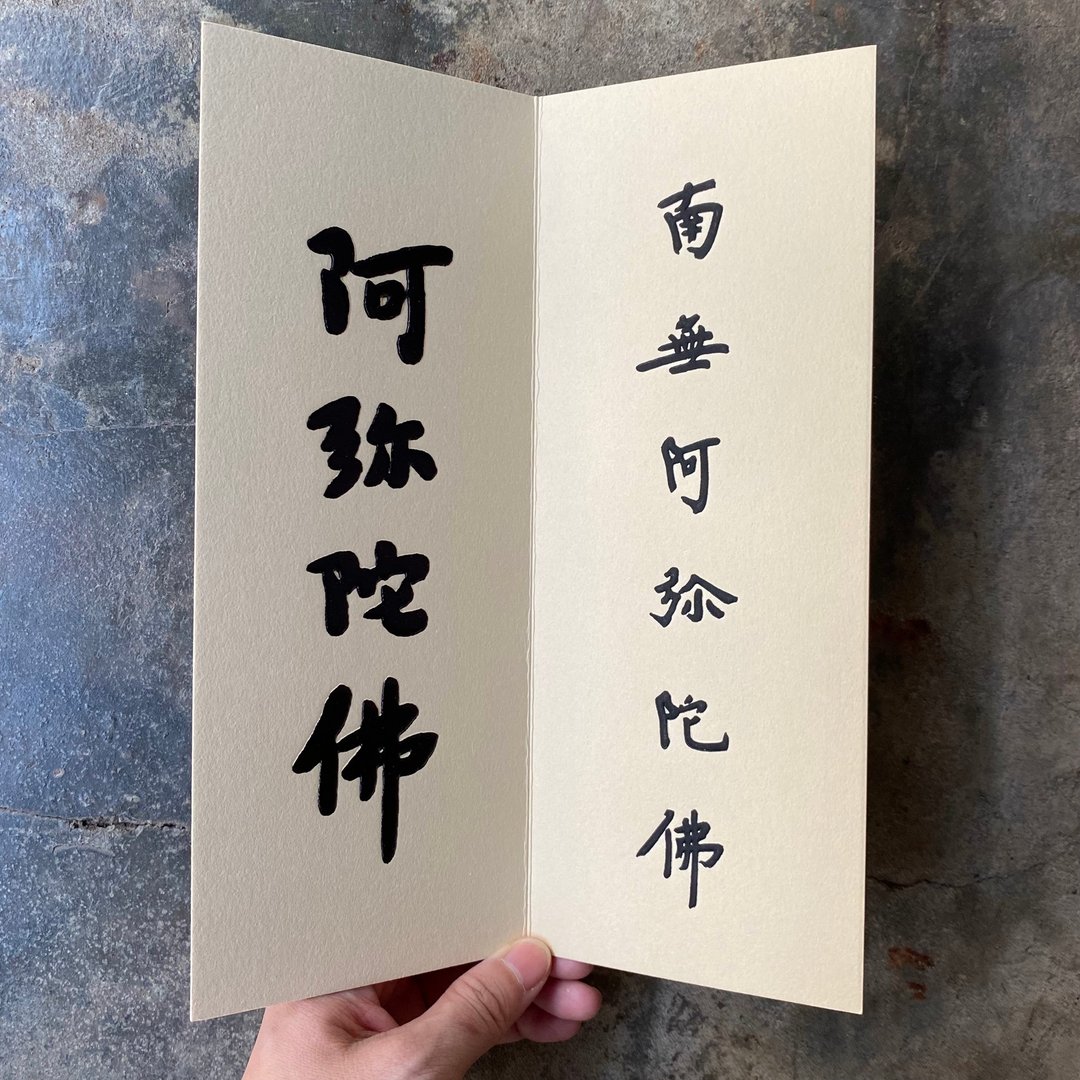 南無阿弥陀佛
阿弥陀佛